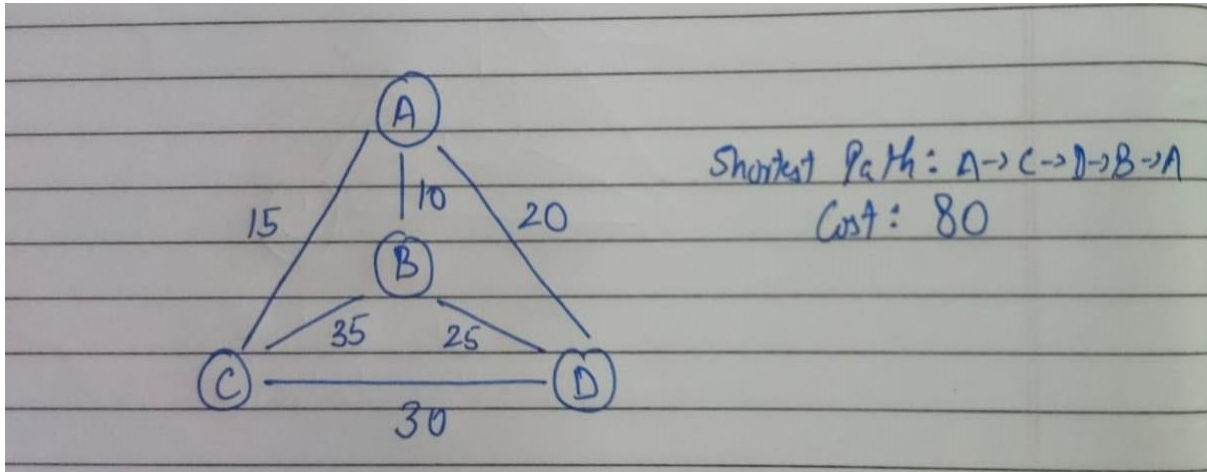 A
15
10
20
B
35
25
C
D
30
Shortest Path: A→C→D→B→A
Cost: 80